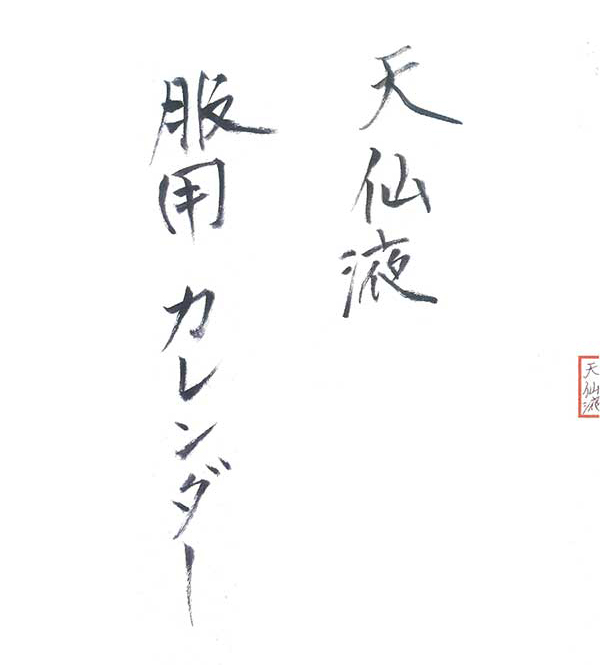 天仙液
服用カレンダー
天仙液